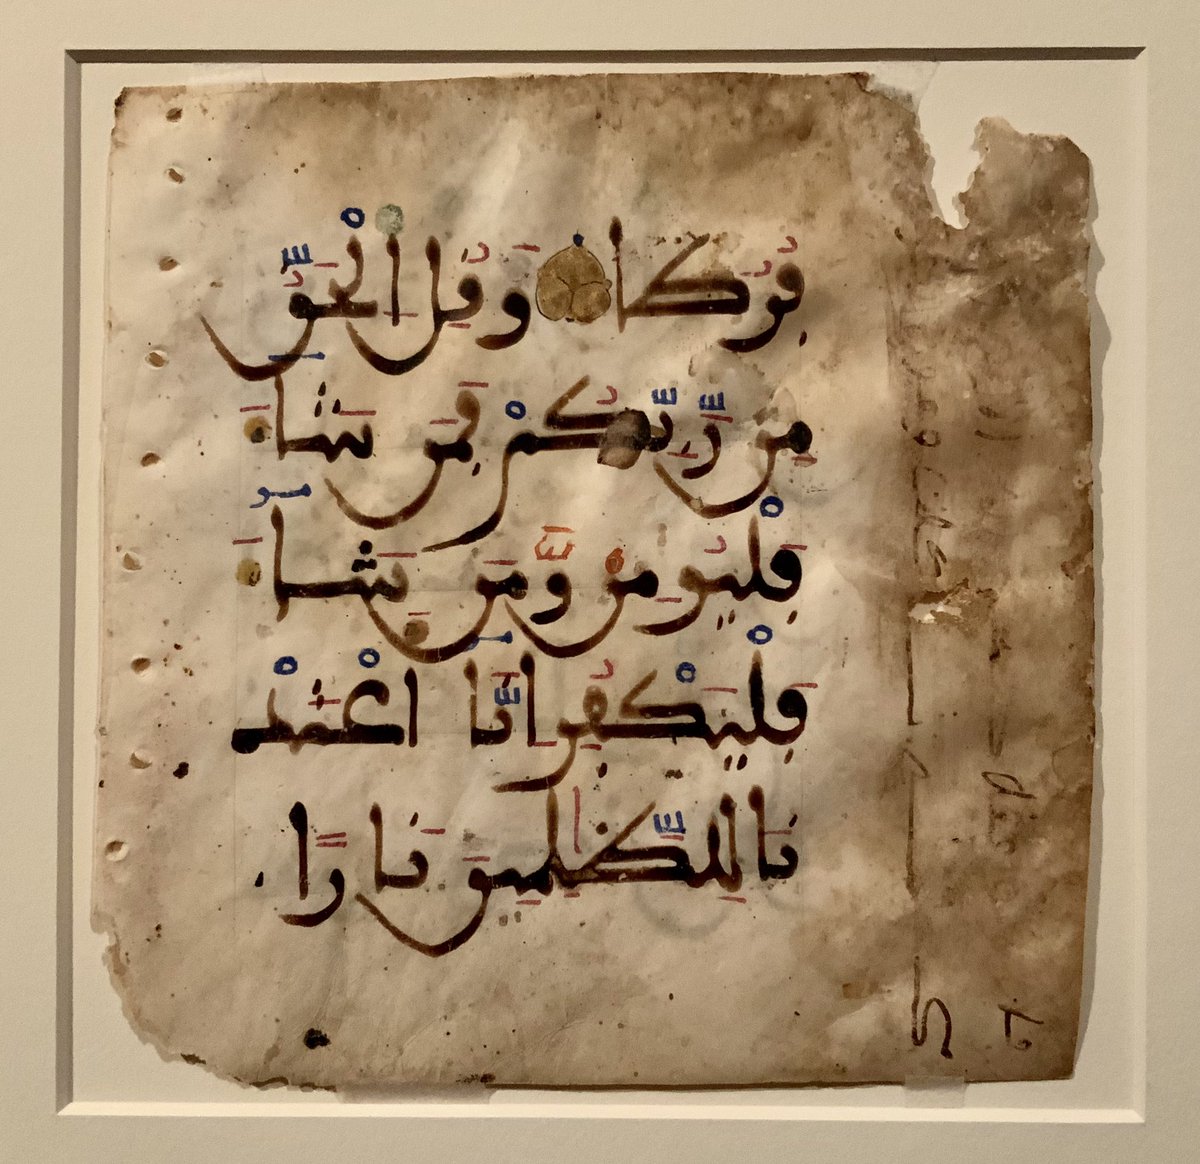 فُرُطًا وَقُلِ اِ۬لْحَقُّ
مِن رَّبِّكُمْ فَمَن شَآءَ
فَلْيُومِنْ وَّمَن شَآءَ
فَلْيَكْفُرِ اِنَّآ أَعْتَدْ
نَا لِلظَّٰلِمِينَ نَارًا